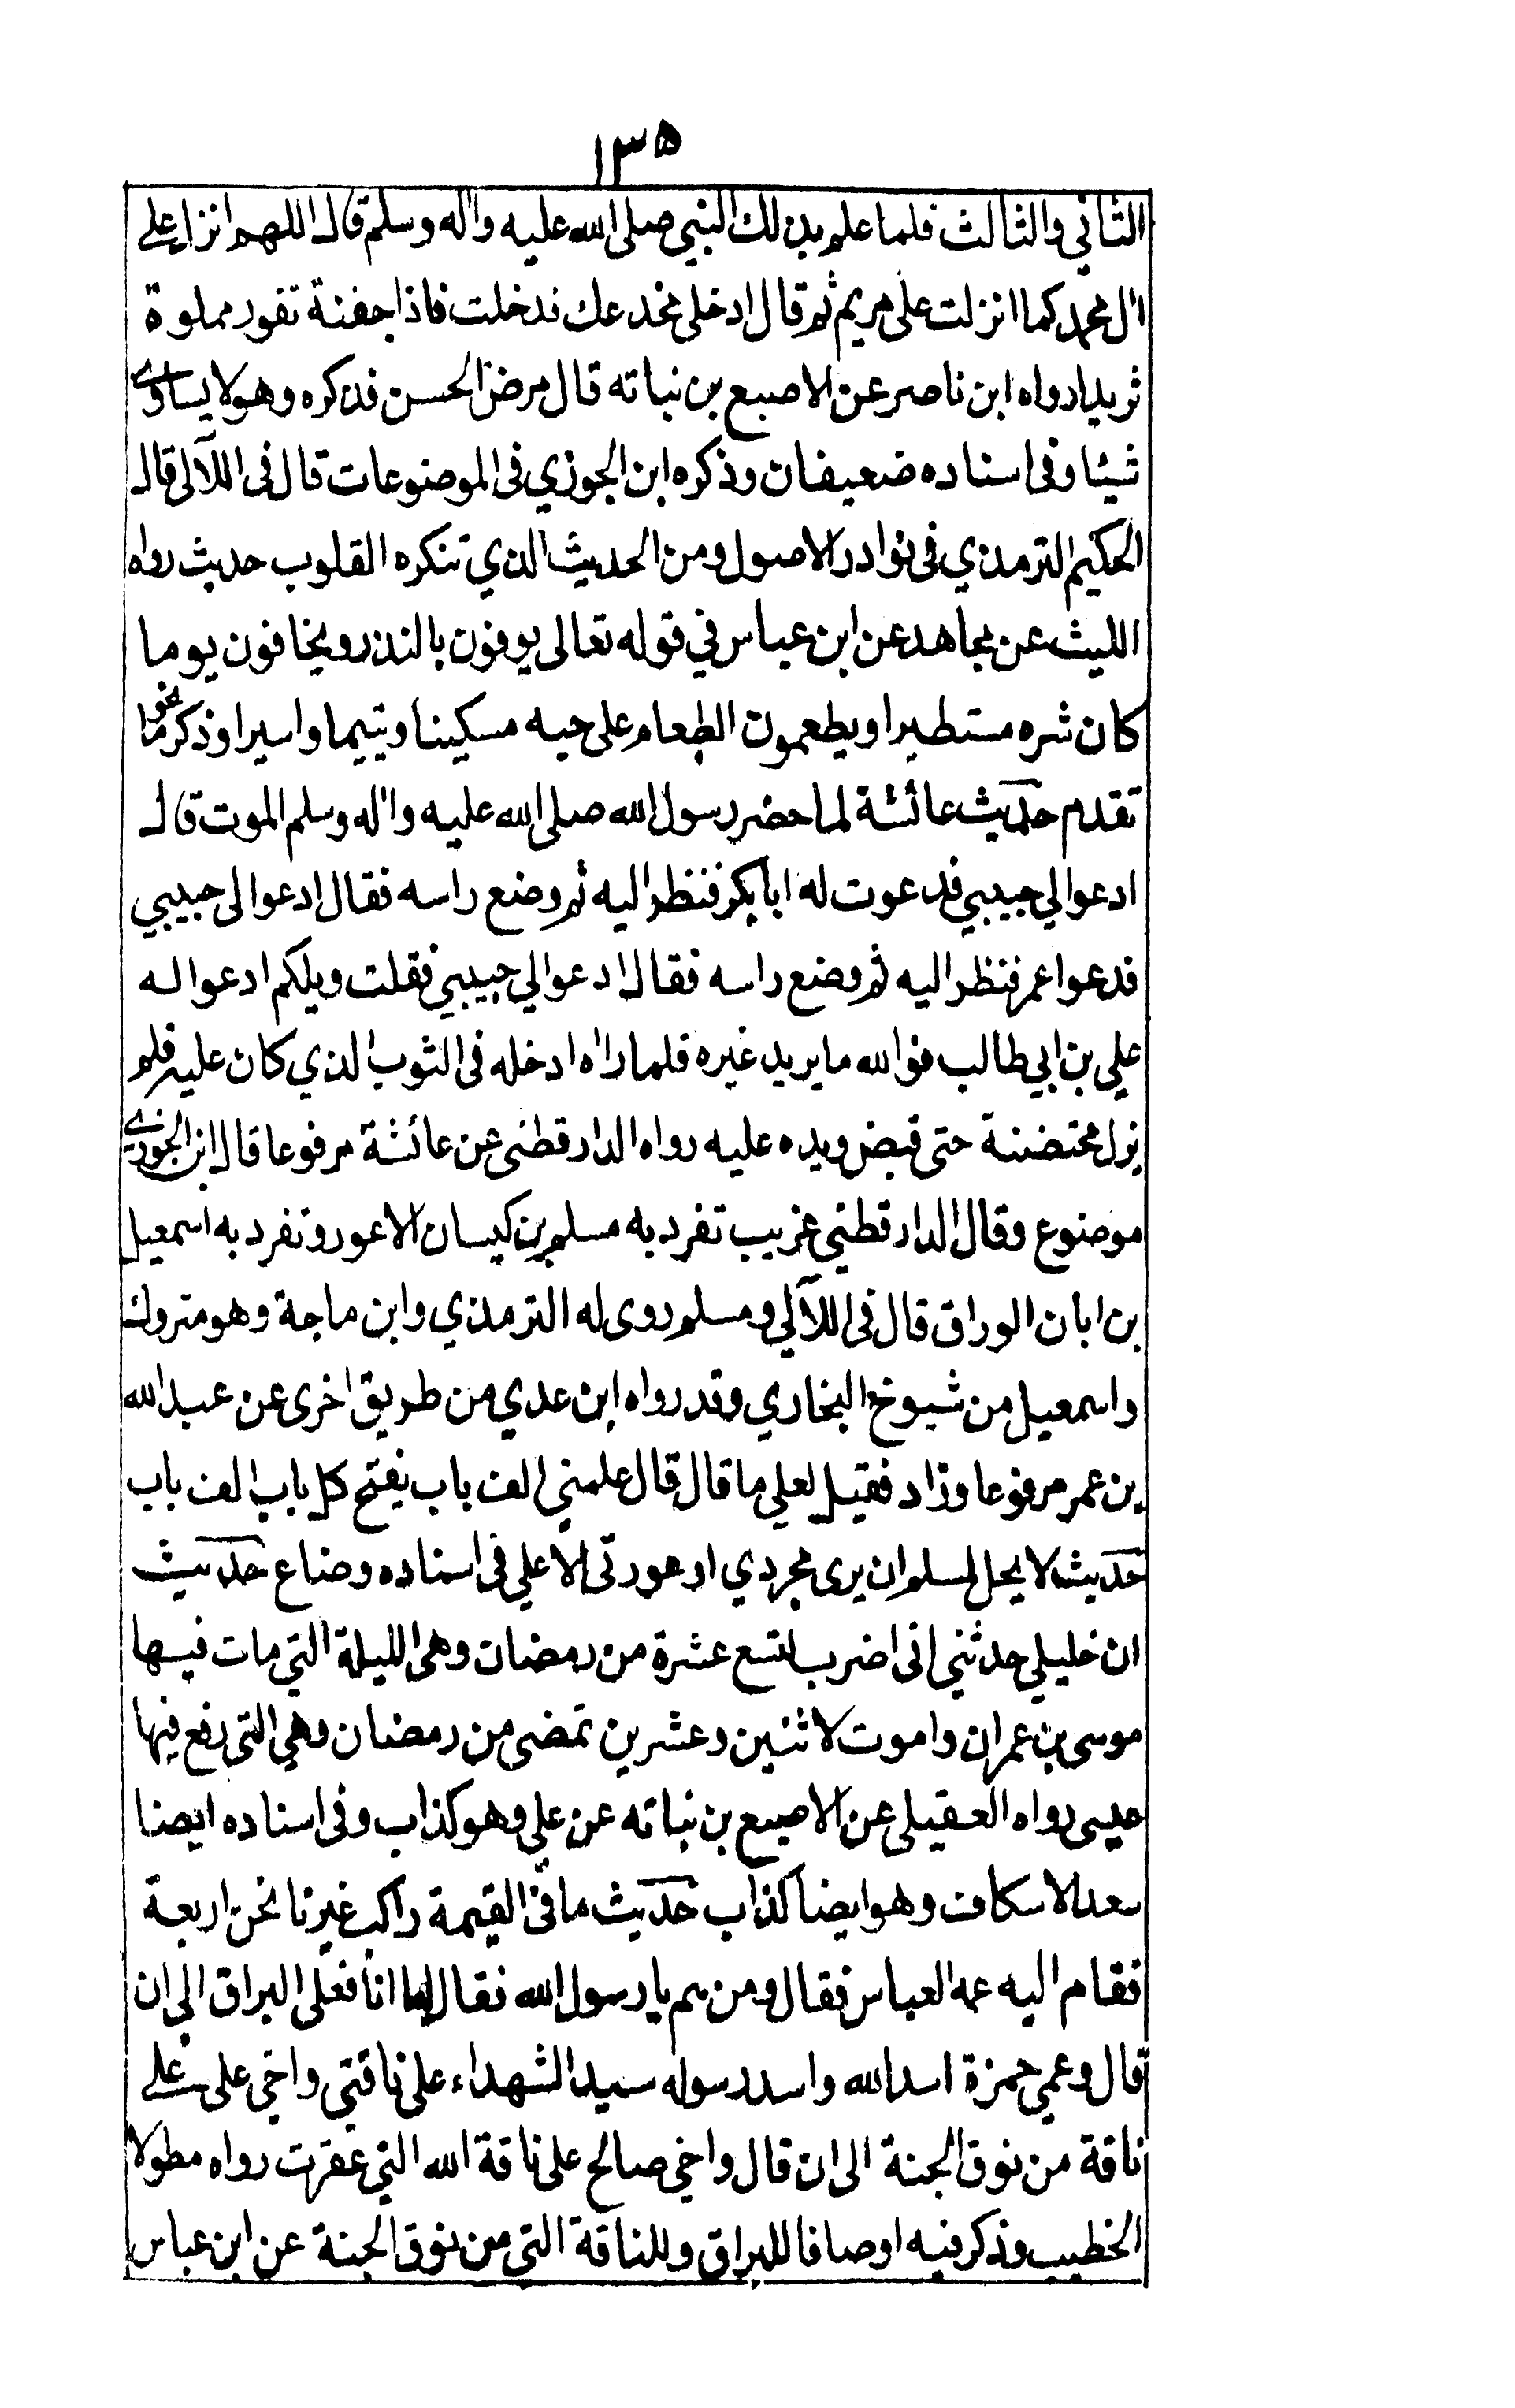 ١٣٥
الثاني والثالث فلما علم بذلك النبي صلى الله عليه واٰله وسلم قال اللهم انزل على
اٰل محمد كما انزلت على مريم ثم قال ادخلى مخدعك فدخلت فاذا جفنة تفور مملوة
ثريدا رواه ابن ناصر عن الاصبع بن نباته قال مرض الحسن فذكره وهو لا يساوي
شيئا وفى اسناده ضعيفان وذكره ابن الجوزي فى الموضوعات قال فى اللآلى قال
الحكيم الترمذي فى نوادر الاصول ومن الحديث الذي تنكره القلوب حديث رواه
الليث عن مجاهد عن ابن عباس في قوله تعالى يوفون بالنذر ويخافون يوما
كان شره مستطيرا ويطعمون الطعام على حبه مسكينا ويتيما واسيرا وذكر نحو ما
تقدم حديث عائشة لما حضر رسول الله صلى الله عليه واٰله وسلم الموت قال
ادعوا لي حبيبي فدعوت له ابا بكر فنظر اليه ثم وضع راسه فقال ادعوا لى حبيبي
فدعوا عمر فنظر اليه ثم وضع راسه فقال ادعوا لي حبيبي فقلت ويلكم ادعوا له
علي بن ابي طالب فوالله ما يريد غيره فلما راٰه ادخله فى الثوب الذي كان عليه فلم
يزل محتضنة حتى قبض ويده عليه رواه الدارقطنى عن عائشة مرفوعا قال ابن الجوزي
موضوع وقال الدارقطني غريب تفرد به مسلم بن كيسان الاعور وتفرد به اسمعيل
بن ابان الوراق قال فى اللآلي ومسلم روى له الترمذي وابن ماجة وهو متروك
واسمعيل من شيوخ البخاري وقد رواه ابن عدي من طريق اخرى عن عبد الله
بن عمر مرفوعا وزاد فقيل لعلي ما قال قال علمني الف باب يفتح كل باب الف باب
حديث لا يحل لمسلم ان يرى مجردي او عورتى الا علي فى اسناده وضاع حديث
ان خليلي حدثني انى اضرب لتسع عشرة من رمضان وهى الليلة التي مات فيها
موسى بن عمران واموت لاثنين وعشرين تمضى من رمضان وهي التى رفع فيها
عيسى رواه العقيلى عن الاصبع بن نباته عن علي وهو كذاب وفى اسناده ايضا
سعد الاسكاف وهو ايضا كذاب حديث ما فى القيمة راكب غيرنا نحن اربعة
فقام اليه عمه العباس فقال ومن هم يا رسول الله فقال اما انا فعلى البراق الى ان
قال وعمي حمزة اسد الله واسد رسوله سيد الشهداء على ناقتى واخى على على
ناقة من نوق الجنة الى ان قال واخي صالح على ناقة الله التي عقرت رواه مطولا
الخطيب وذكر فيه اوصافا للبراق وللناقة التى من نوق الجنة عن ابن عباس